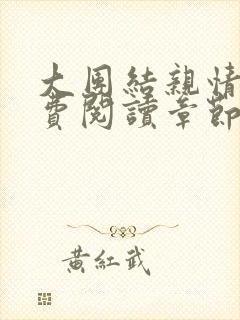 大团結親情
費閱讀章節
黃紅武